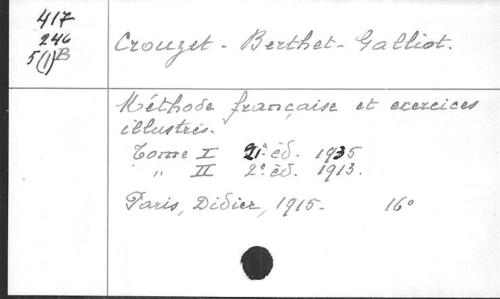 417
246
5(1)B
Crouzet - Berthet - Galliot.
Méthode française et exercices
illustrés.
Tome I 21e éd. 1935
" II 2e éd. 1913.
Paris, Didier, 1915. 16°